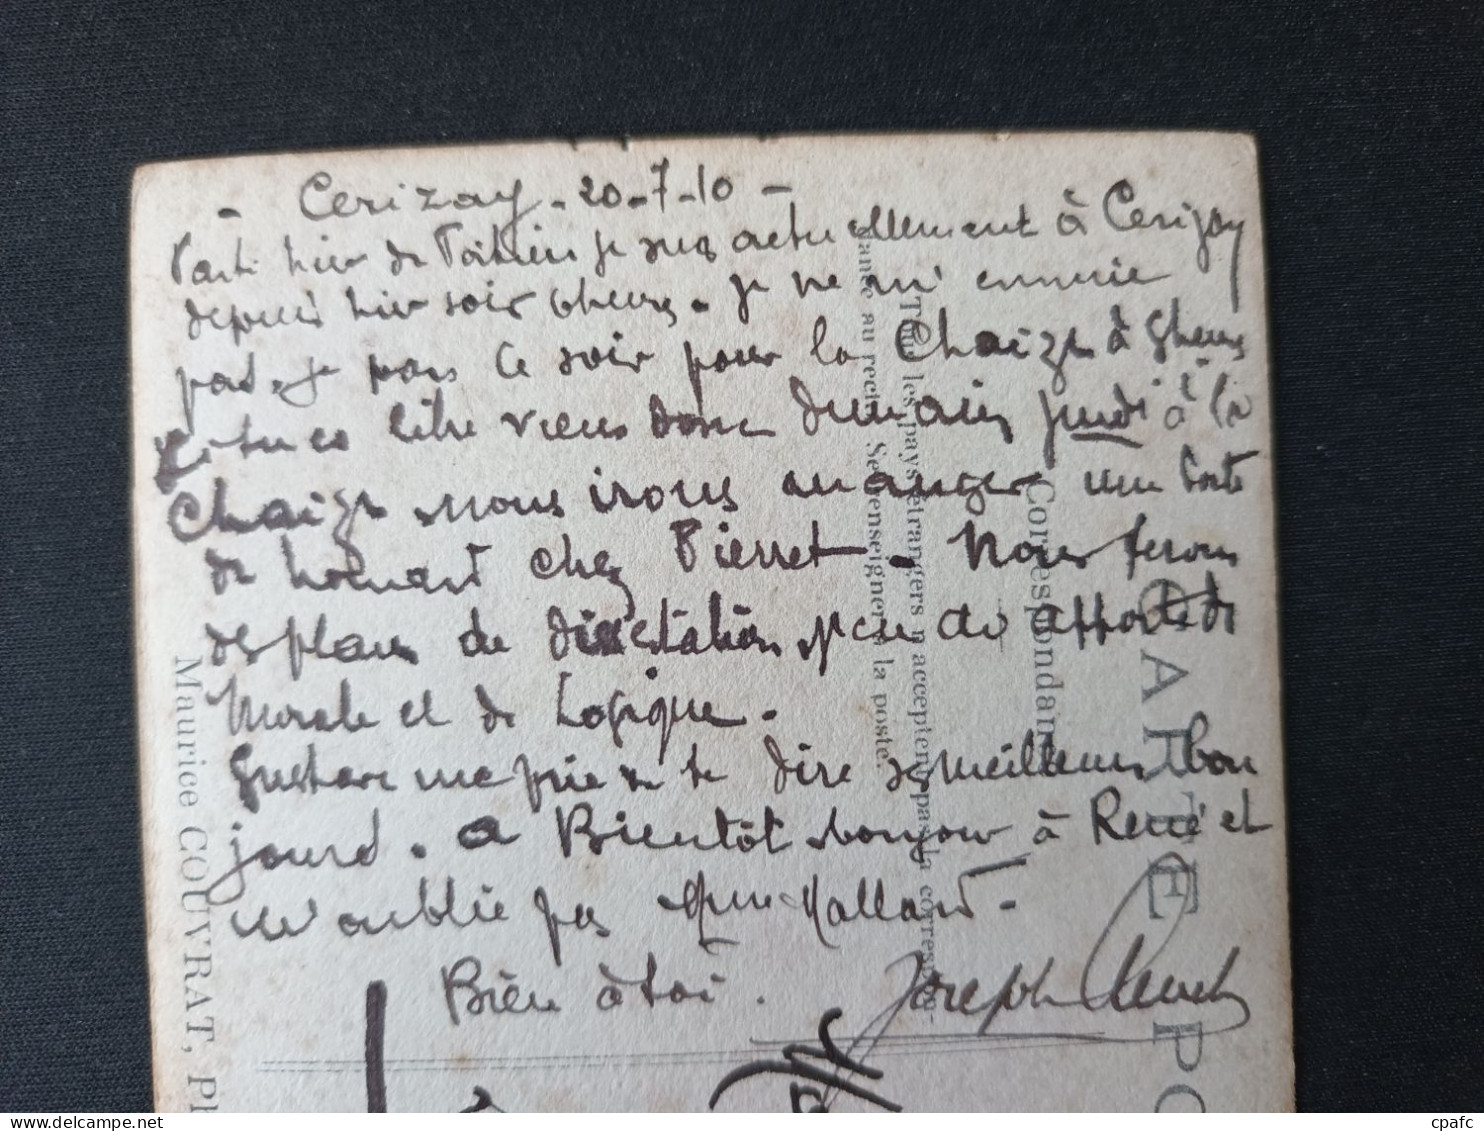 - Cerizay - 20-7-10 -
Parti hier de Poitiers je suis actuellement à Cerizay
depuis hier soir 6 heures. Je ne m'ennuie
pas. Je pars ce soir pour la Chaize à 9 heures
Si tu es libre viens donc demain jeudi à la
Chaize nous irons manger une boîte
de homard chez Pierret. Nous ferons
des plans de dissertation, peu de
Morale et de Logique.
Gustave me prie de te dire ses meilleurs bon
jours. A Bientôt bonjour à René et
n'oublie pas Mallard.
Bien à toi. Joseph
CARTE PO
Correspondance
Tous les pays étrangers n'acceptent pas la correspon-
dance au recto. Se renseigner à la poste.
Maurice COUVRAT, Ph
cpafc